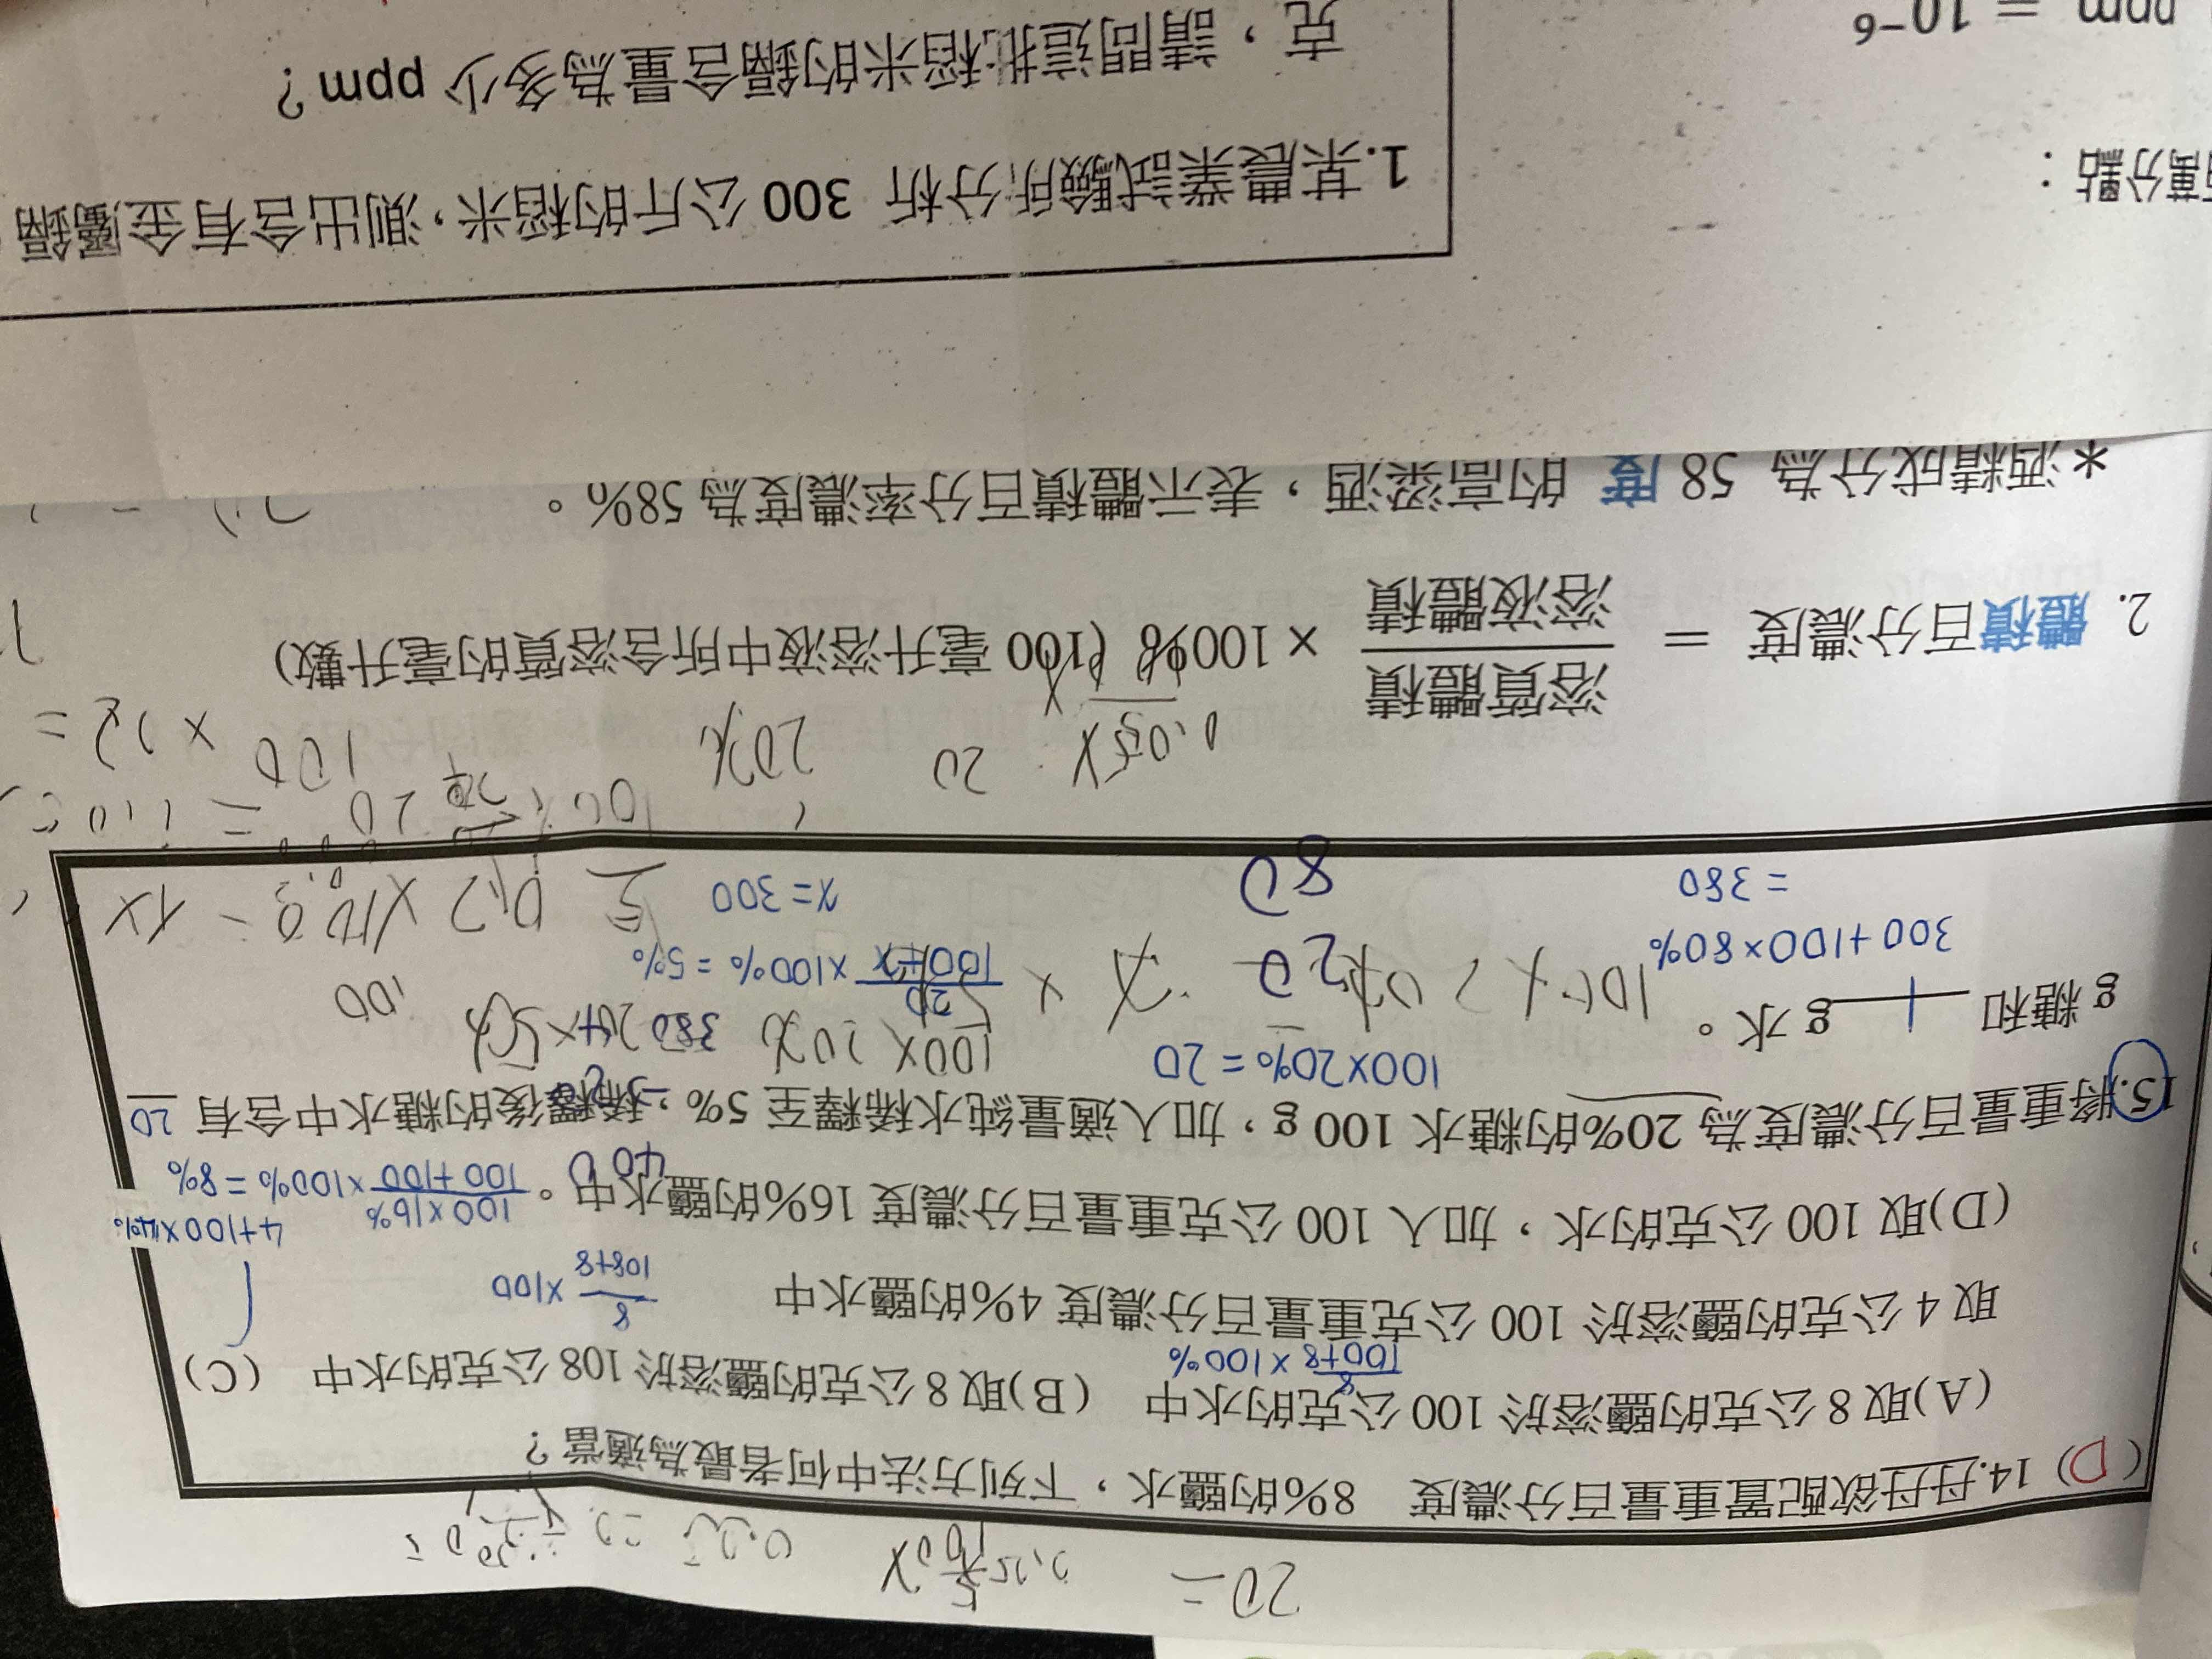 20 =
(D) 14.丹丹欲配置重量百分濃度 8%的鹽水，下列方法中何者最為適當？
(A)取 8 公克的鹽溶於 100 公克的水中 (B)取 8 公克的鹽溶於 108 公克的水中 (C)
8/100+8 ×100%
取 4 公克的鹽溶於 100 公克重量百分濃度 4%的鹽水中
8/108+8 ×100
4+100×4%
(D)取 100 公克的水，加入 100 公克重量百分濃度 16%的鹽水中。
100×16%/100+100 ×100% = 8%
400
15.將重量百分濃度為 20%的糖水 100 g，加入適量純水稀釋至 5%，稀釋後的糖水中含有 20
g 糖和 g 水。
100×20% = 20
380
20/100+x ×100% = 5%
x = 300
300+100×80%
= 380
80
0.05X 20 20%
2. 體積百分濃度 = 溶質體積/溶液體積 × 100% (100 毫升溶液中所含溶質的毫升數)
*酒精成分為 58 度 的高粱酒，表示體積百分率濃度為 58%。
百萬分點：
ppm = 10-6
1.某農業試驗所分析 300 公斤的稻米，測出含有金屬鎘
克，請問這批稻米的鎘含量為多少 ppm？